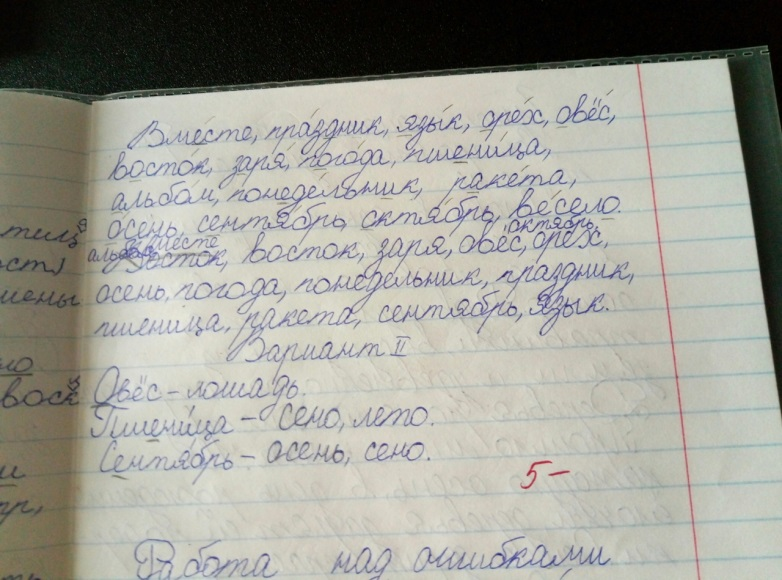 Вместе, пра́здник, язы́к, оре́х, овёс,
восто́к, заря́, пого́да, пшени́ца,
альбо́м, понеде́льник, раке́та,
о́сень, сентя́брь, октя́брь, ве́село.
октябрь,
альбом, вместе
восток, восток, заря, овёс, орех,
осень, погода, понедельник, праздник,
пшеница, ракета, сентябрь, язык.
Вариант II
Овёс – лошадь.
Пшени́ца – сено, лето.
Сентя́брь – осень, сено.
5–
Работа над ошибками